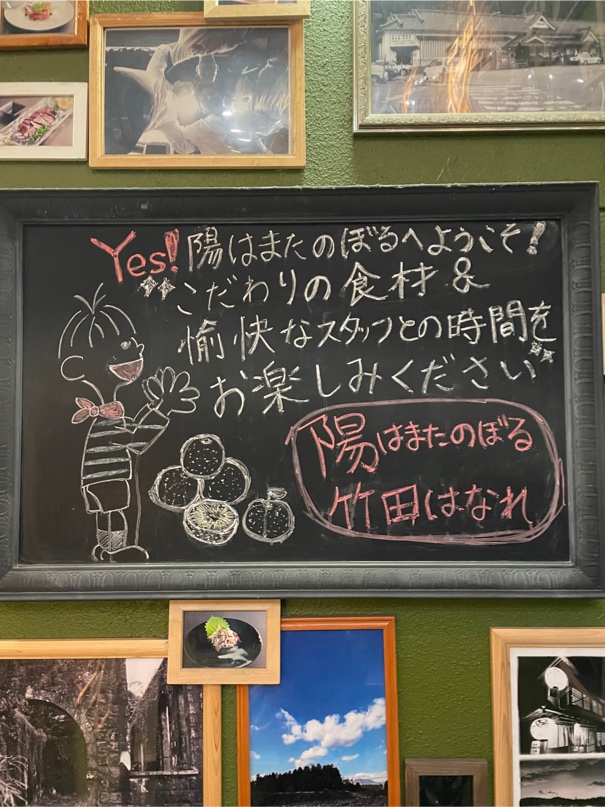 Yes! 陽はまたのぼるへようこそ!
こだわりの食材&
愉快なスタッフとの時間を
お楽しみください
陽はまたのぼる
竹田はなれ